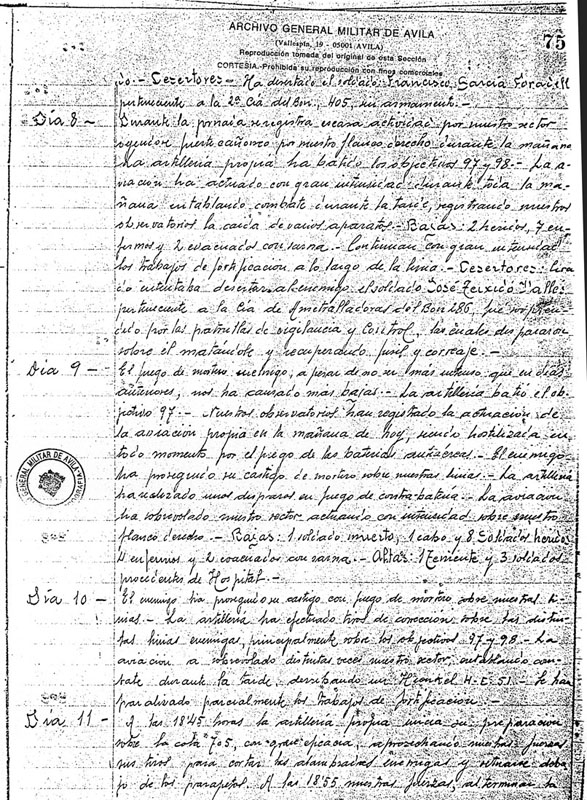 ARCHIVO GENERAL MILITAR DE AVILA
(Vallespín, 19 - 05001 AVILA)
Reproducción tomada del original de esta Sección
CORTESIA.-Prohibida su reproducción con fines comerciales
75
do.- Desertores - Ha desertado el soldado Francisco García
perteneciente a la 2ª Cia del Bon, 405, sin armamento.-
Día 8 - Durante la jornada se registra escasa actividad por nuestro sector
oyendose fuerte cañoneo por nuestro flanco derecho durante la mañana
La artilleria propia ha batido los objetivos 97 y 98.- La a-
viacion ha actuado con gran intensidad durante toda la ma-
ñana entablando combate durante la tarde, registrando nuestros
observatorios la caida de varios aparatos.- Bajas: 2 heridos, 7 en-
fermos y 2 evacuados con sarna.- Continuan con gran intensidad
los trabajos de fortificacion a lo largo de la linea.- Desertores: Cuan-
do intentaba desertar al enemigo el soldado José
perteneciente a la Cia de Ametralladoras del Bon 286, fue sorpren-
dido por las patrullas de vigilancia y Control, las cuales dispararon
sobre el matándole y recuperando fusil y correaje.-
Día 9 - El fuego de mortero enemigo, a pesar de no ser mas intenso que en dias
anteriores, nos ha causado mas bajas.- La artilleria batió el ob-
jetivo 97.- Nuestros observatorios han registrado la actuacion de
la aviacion propia en la mañana de hoy, siendo hostilizada en
todo momento por el fuego de las baterias antiaereas.- El enemigo
ha proseguido su castigo de mortero sobre nuestras lineas.- La artilleria
ha realizado unos disparos en fuego de contra-bateria.- La aviacion
ha sobrevolado nuestro sector actuando con intensidad sobre nuestro
flanco derecho.- Bajas: 1 soldado muerto, 1 cabo y 8 soldados heridos
4 enfermos y 2 evacuados con sarna.- Altas: 1 Teniente y 3 soldados
procedentes de Hospital.-
ARCHIVO GENERAL MILITAR DE AVILA
Día 10 - El enemigo ha proseguido su castigo con fuego de mortero sobre nuestras li-
neas.- La artilleria ha efectuado tiros de correccion sobre las distin-
tas lineas enemigas, principalmente sobre los objetivos 97 y 98.- La
aviacion a sobrevolado distintas veces nuestro sector, entablando com-
bate durante la tarde, derribando un Heinkel H-E 51.- Se han
paralizado parcialmente los trabajos de fortificacion.-
Día 11 - A las 18'45 horas la artilleria propia inicia su preparacion
sobre la cota 705, con grave eficacia, aprovechando nuestras fuerzas
sus tiros para cortar las alambradas enemigas y situarse deba-
jo de los parapetos. A las 18'55 nuestras fuerzas, al terminar la